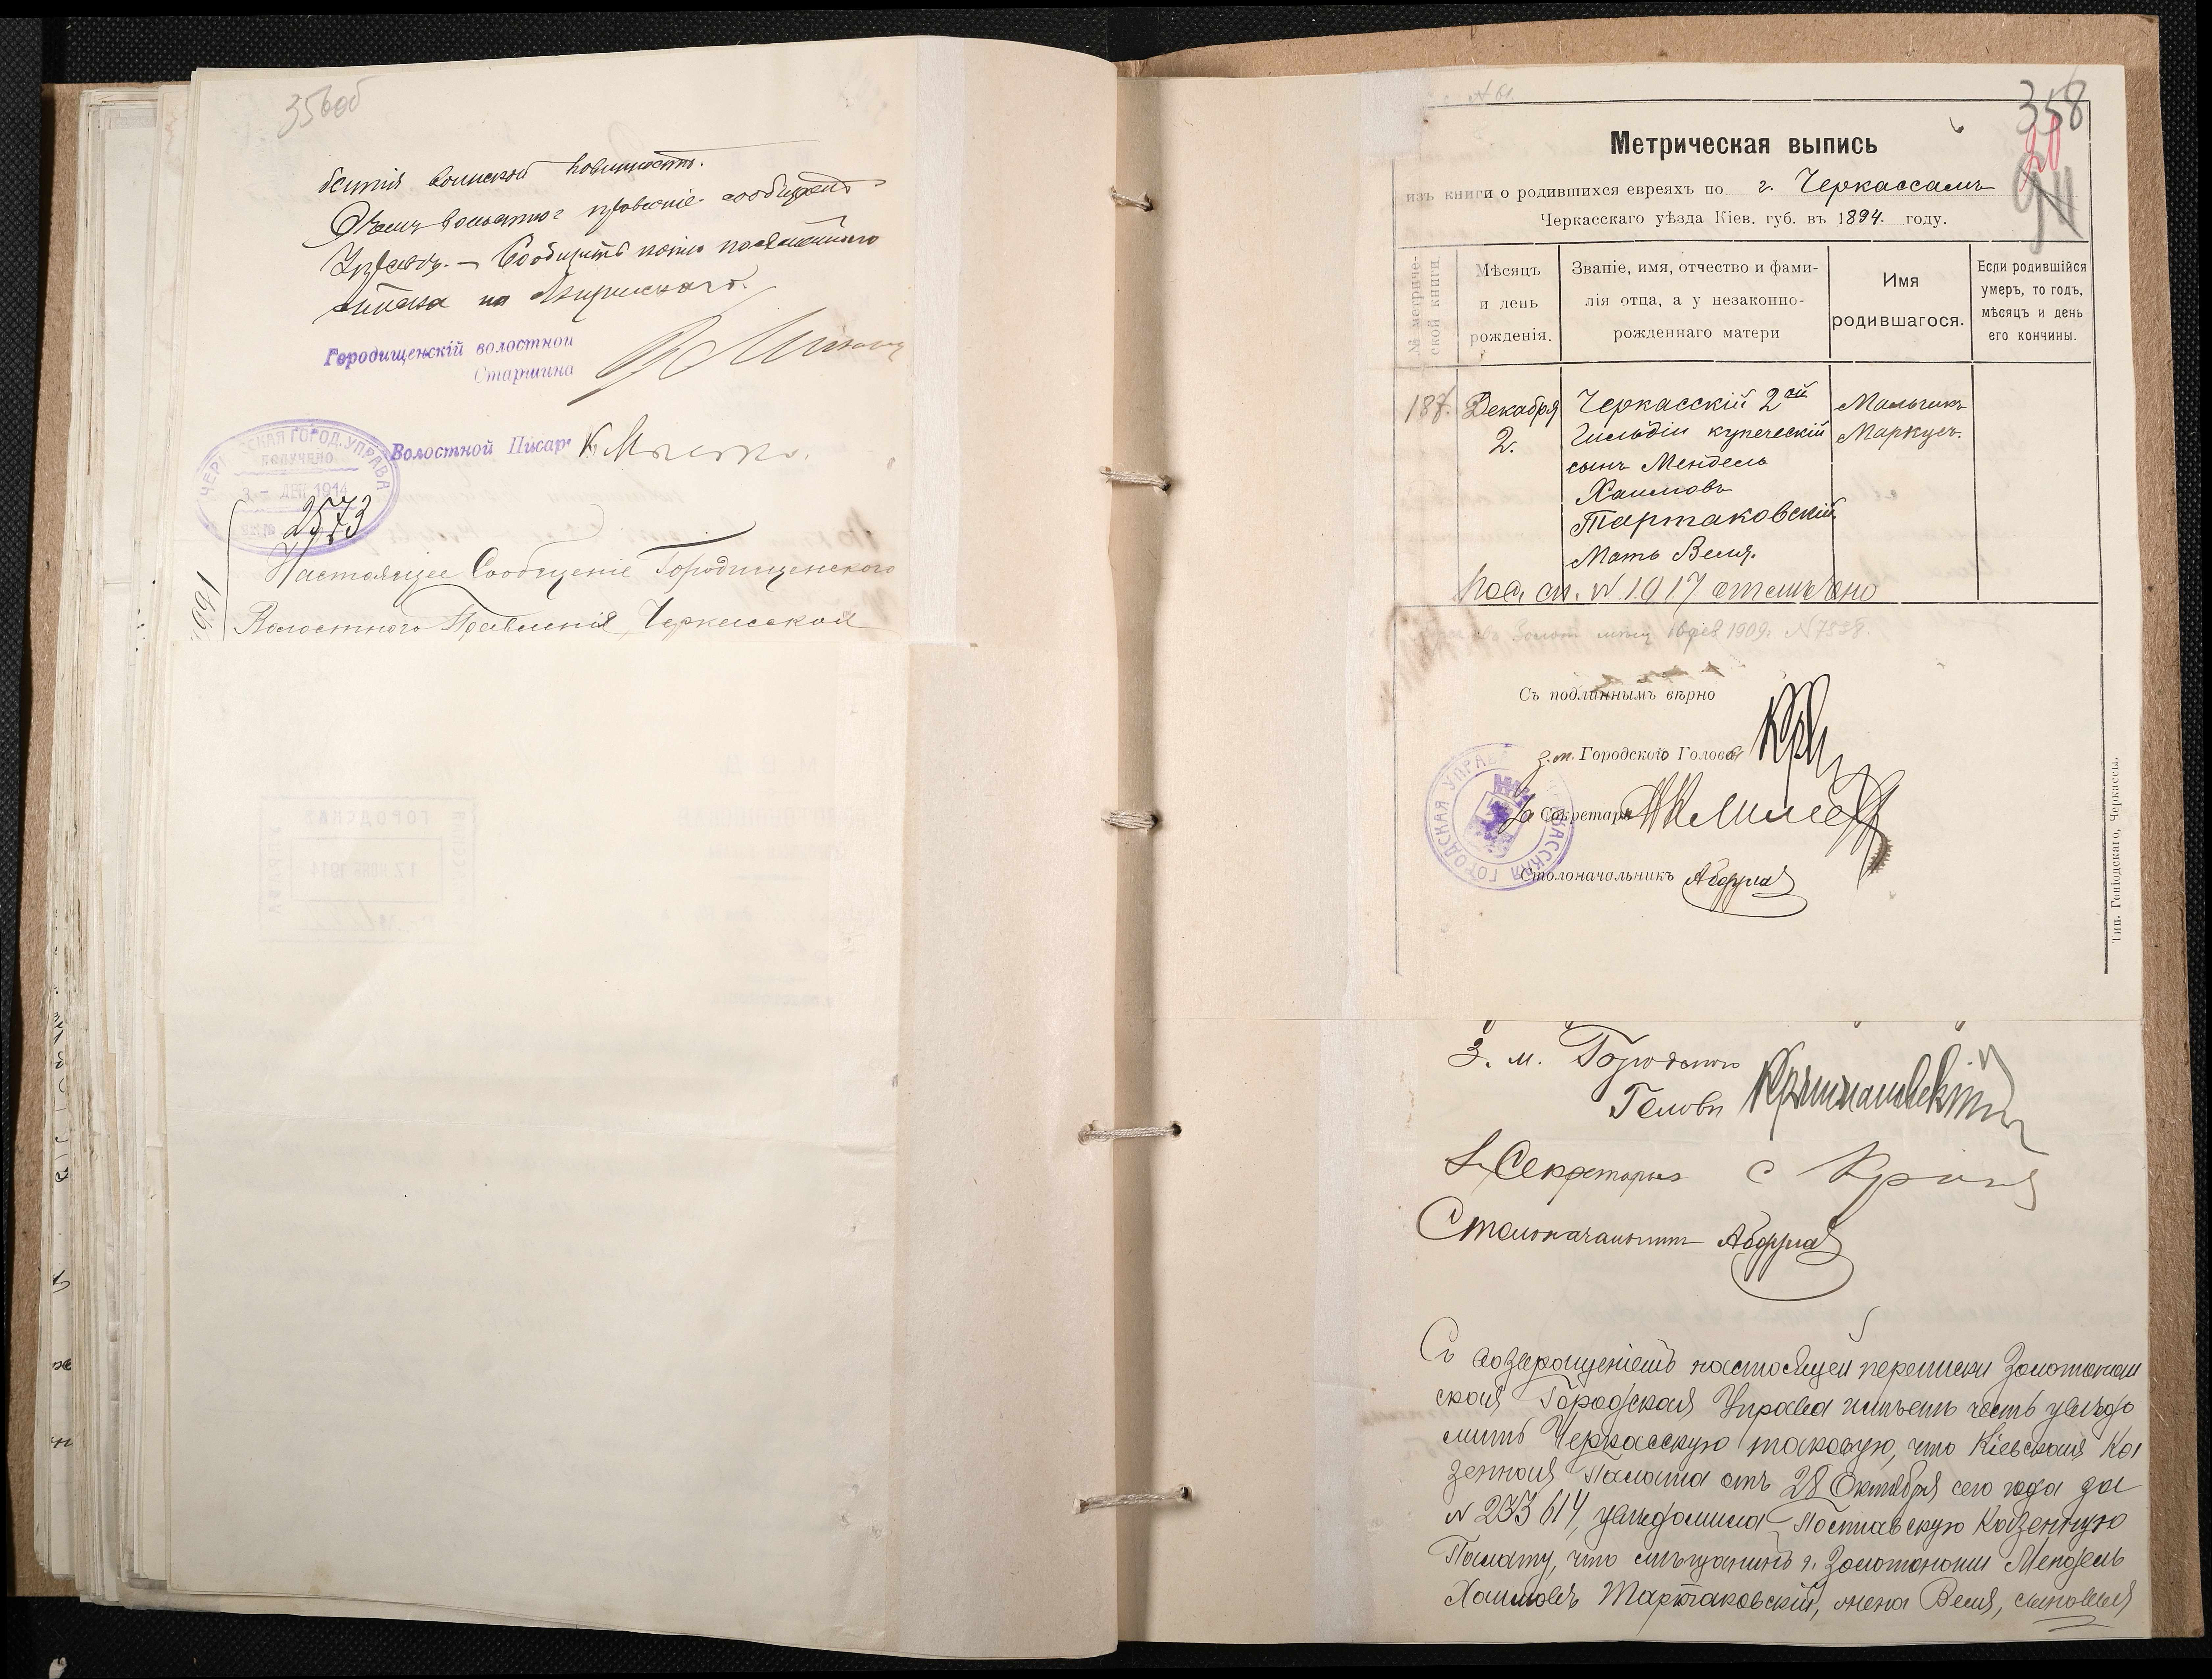 356об
воинской повинности.
волостное правленіе сообщаетъ
Управѣ. – Сообщить копію посемейнаго
списка на
Городищенскій волостной
Старшина
Волостной Писарь
ГОРОД. УПРАВА
ПОЛУЧЕНО
3 – ДЕК 1914
2573
Настоящее Сообщеніе Городищенского
Волостного Правленія, Черкасской
358
20
Метрическая выпись
изъ книги о родившихся евреяхъ по г. Черкассамъ
Черкасскаго уѣзда Кіев. губ. въ 1894. году.
№ метриче-
ской книги.
Мѣсяцъ
и день
рожденія.
Званіе, имя, отчество и фами-
лія отца, а у незаконно-
рожденнаго матери
Имя
родившагося.
Если родившійся
умеръ, то годъ,
мѣсяцъ и день
его кончины.
187.
Декабря
2.
Черкасскій 2ой
Гильдіи купеческій
сынъ Мендель
Хаимовъ
Тартаковскій.
Мать Веля.
Мальчикъ
Маркусъ.
Пос. сп. № 1017 отмѣчено
1909г. № 7828.
Съ подлиннымъ вѣрно
З. м. Городского Головы
Секретарь
Столоначальникъ
ЧЕРКАССКАЯ ГОРОДСКАЯ УПРАВА
Тип. Гоніодскаго, Черкассы.
З. м. Городского
Головы
Секретарь
Столоначальникъ
Съ возвращеніемъ настоящей переписки Золотонош
ская Городская Управа имѣетъ честь увѣдо
мить Черкасскую таковую, что Кіевская Ка
зенная Палата отъ 28 Октября сего года за
№ 233614, увѣдомила Полтавскую Казенную
Палату, что мѣщанинъ г. Золотоноши Мендель
Хаимовъ Тартаковскій, жена Веля, сыновья